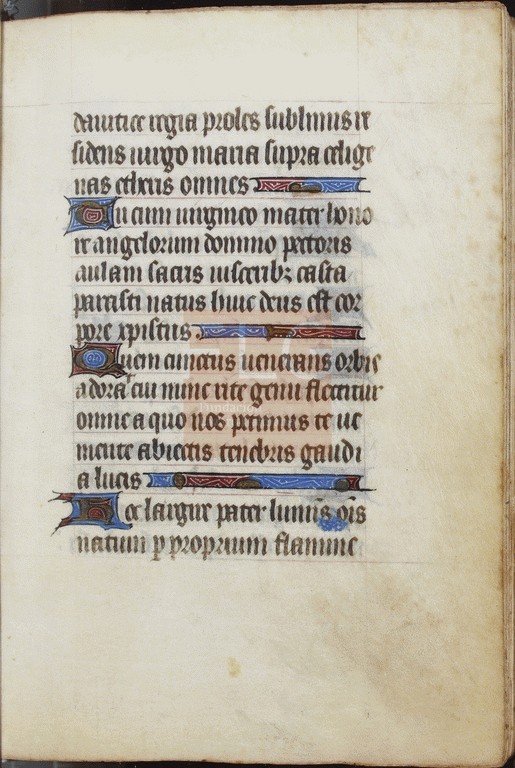 dauitice regia proles sublimis re
sidens uirgo maria supra celige
nas etheris omnes
Tu cum uirgineo mater hono
re angelorum domino pectoris
aulam sacris uisceribz casta
parasti natus huic deus est cor
pore xpistus
Quem cunctus uenerans orbis
adorat cui nunc rite genu flectitur
omne a quo nos petimus te ue
niente abiectis tenebris gaudi
a lucis
Hec largire pater luminis ois
natum p proprium flamine